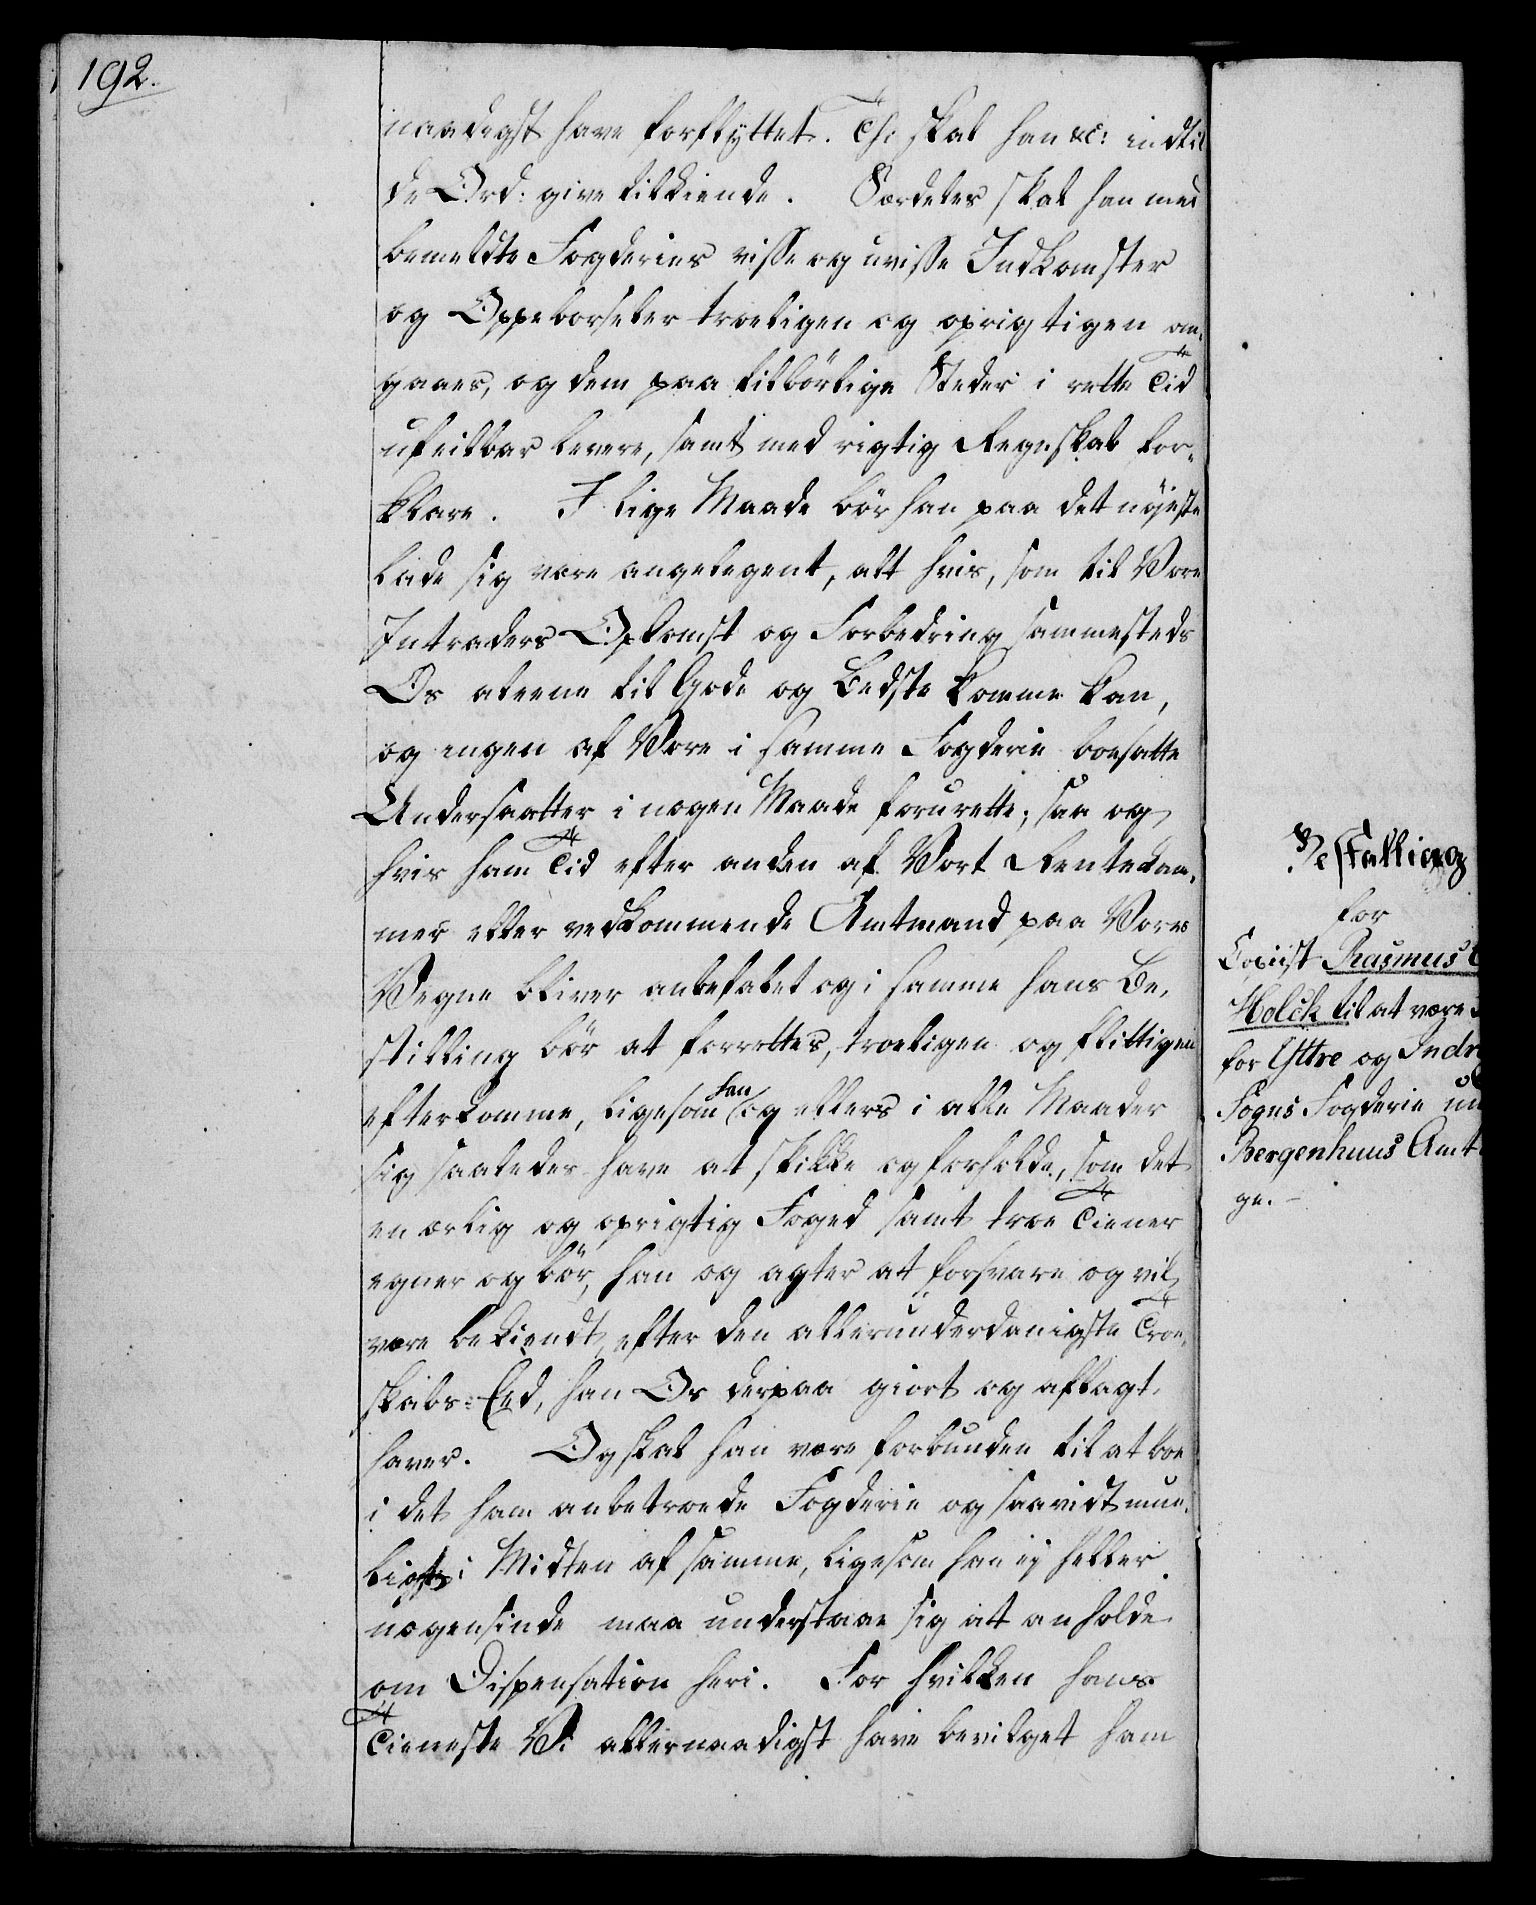 192.
naadigst have forflyttet. Thi skal han &c: indtil
de Ord: give tilkiende. Særdeles skal han med
bemeldte Fogderies visse og uvisse Indkomster
og Oppebørseler troeligen og oprigtigen om-
gaaes, og dem paa tilbørlige Steder i rette Tid
ufeilbar levere, samt med rigtig Regnskab for-
klare. I lige Maade bør han paa det nøyeste
lade sig være angelegent, alt hvis, som til Vore
Intraders Opkomst og Forbedring sammesteds
Os alene til Gode og Bedste komme kan,
og ingen af Vore i samme Fogderie boesatte
Undersaatter i nogen Maade forurette; saa og
hvis ham Tid efter anden af Vort Rentekam-
mer eller vedkommende Amtmand paa Vores
Vegne bliver anbefalet og i samme hans Be-
stilling bør at forrettes, troeligen og flittigen
efterkomme, ligesom han og ellers i alle Maader
sig saaledes have at skikke og forholde, som det
en ærlig og oprigtig Foged samt troe Tiener
egner og bør, han og agter at forsvare og vil
være bekiendt, efter den allerunderdanigste Troe-
skabs-Eed, han Os derpaa giort og aflagt
haver. Og skal han være forbunden til at boe
i det ham anbetroede Fogderie og saavidt mue-
ligt i Midten af samme, ligesom han ej heller
nogensinde maa understaae sig at anholde
om Dispensation heri. For hvilken hans
Tieneste Vi allernaadigst have bevilget ham
Bestalling
for
Copiist Rasmus
Holck til at være
for Yttre og Indre
Sogns Fogderie un
Bergenhuus Amt
ge.